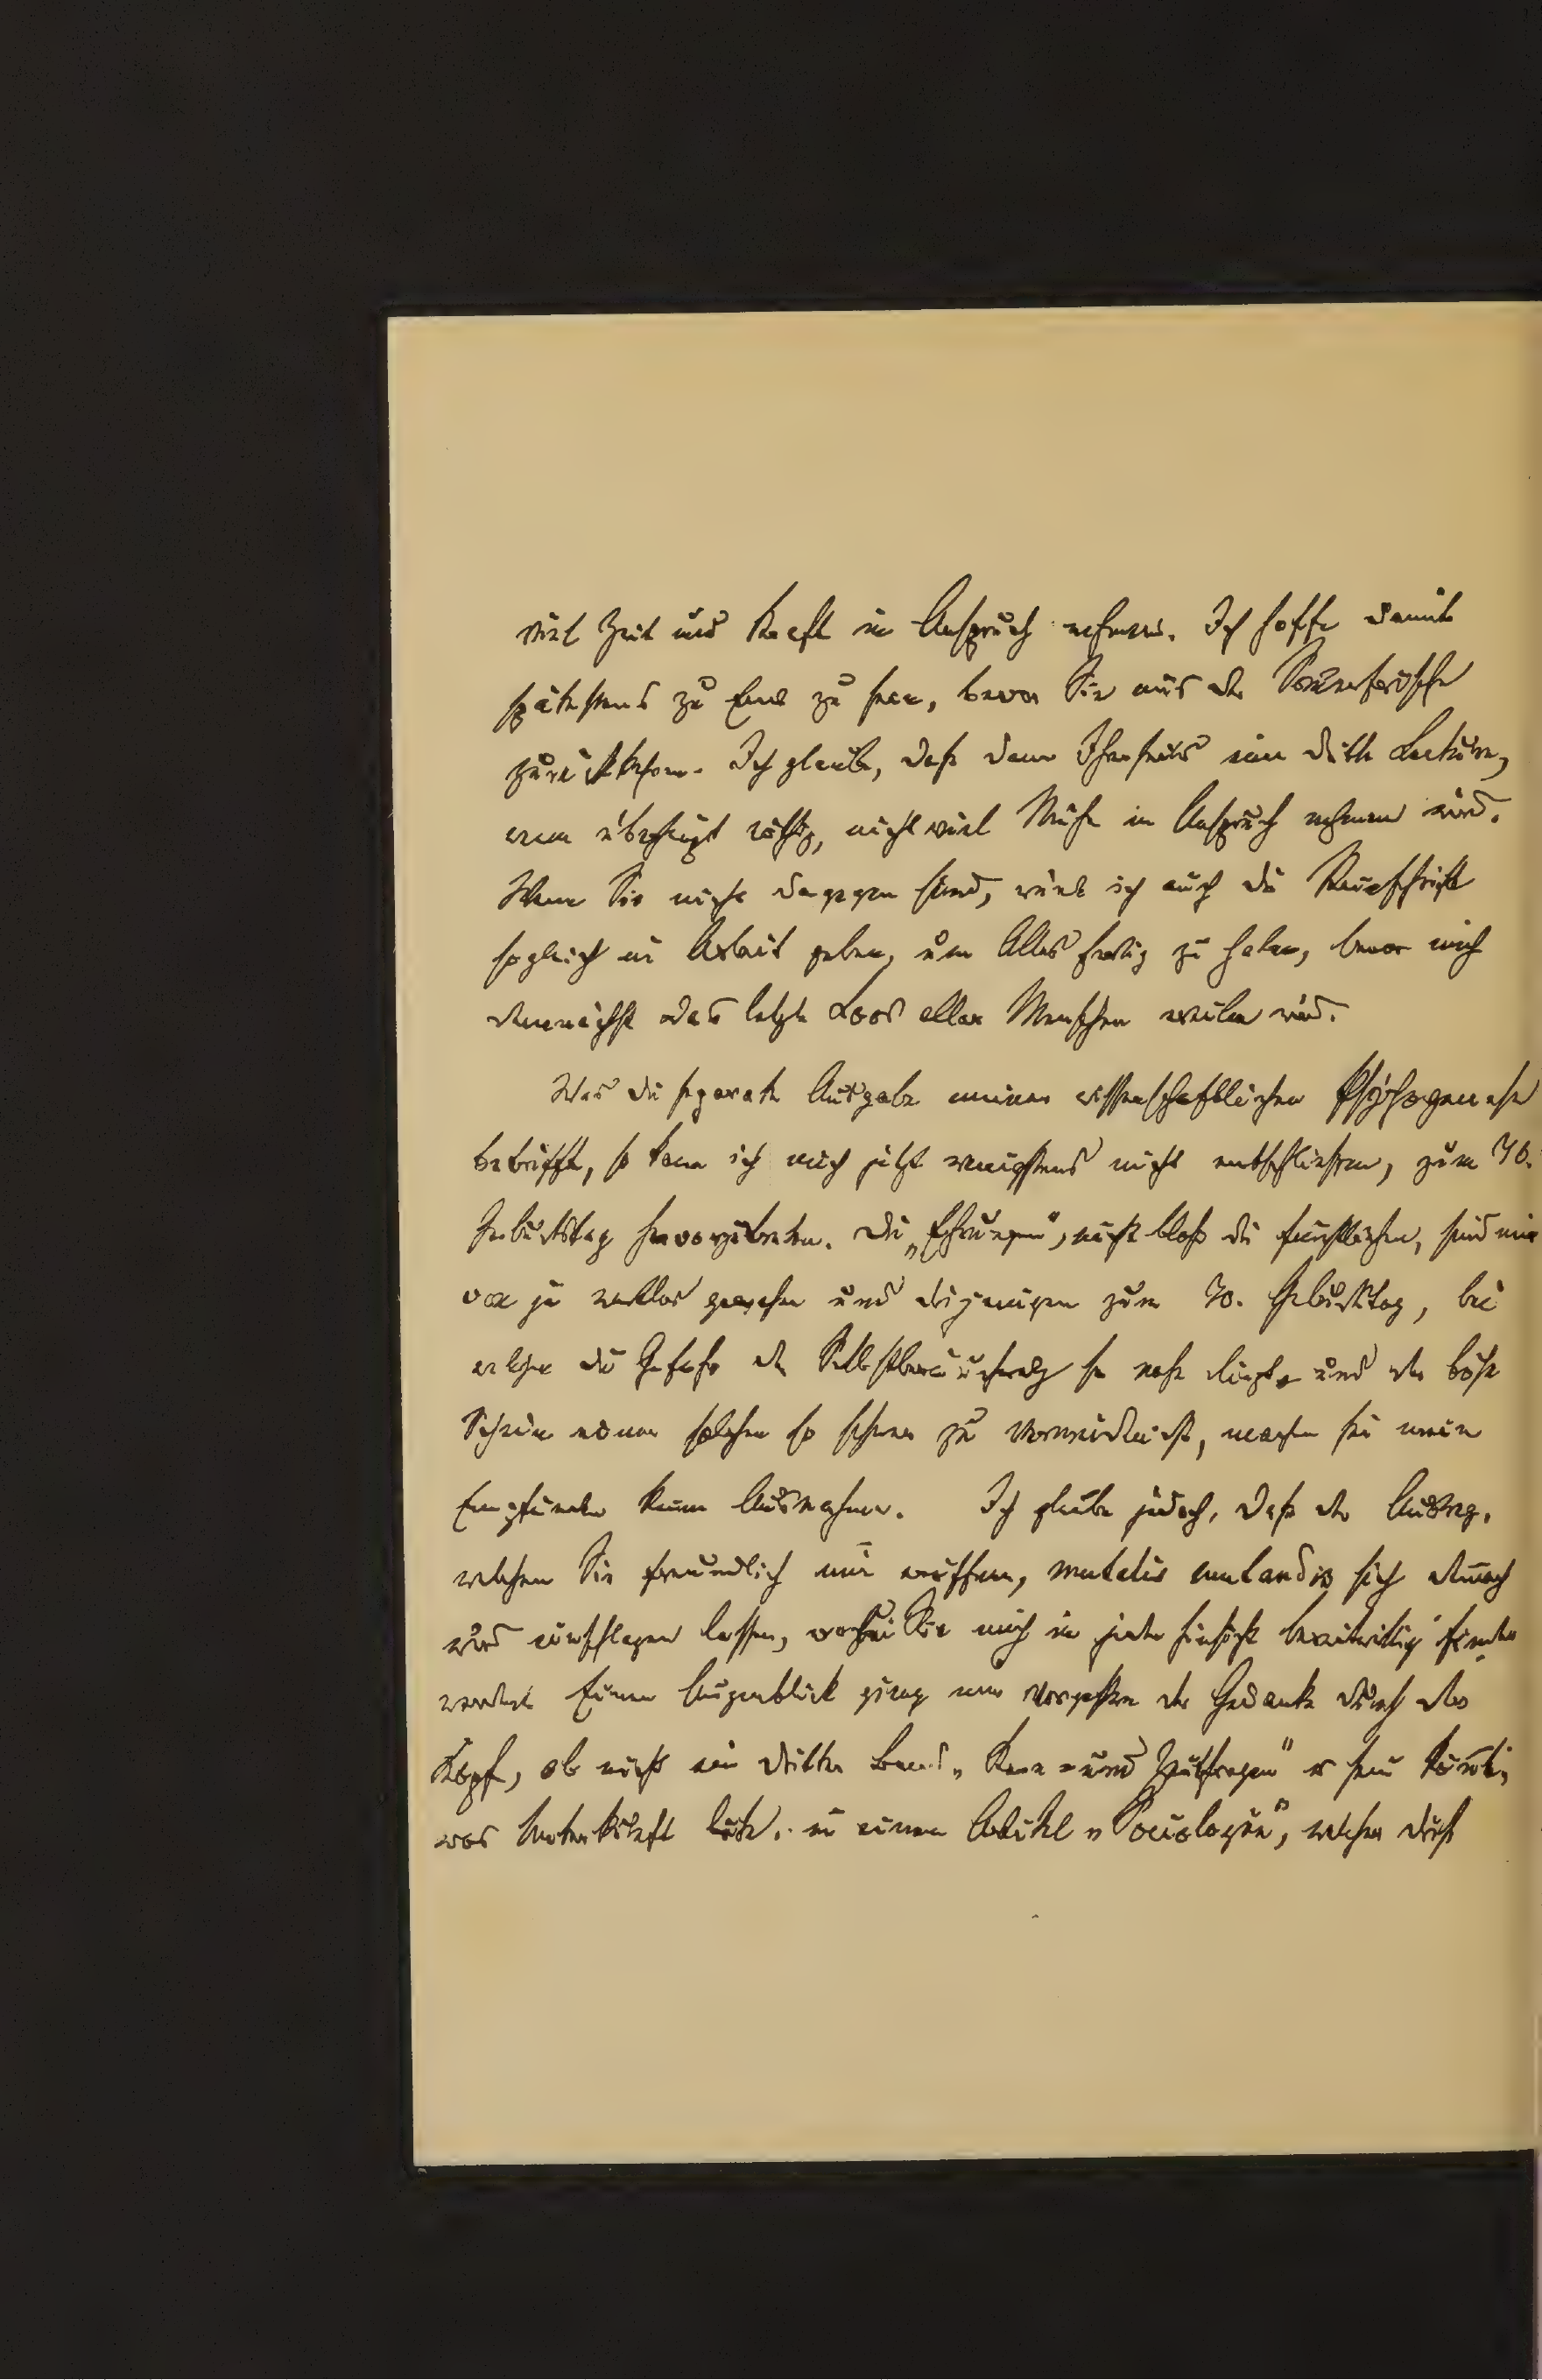 viel Zeit und Kraft in Anspruch nehmen. Ich hoffe damit
spätestens zu Ende zu sein, bevor Sie aus der Sommerfrische
zurückkehren. Ich glaube, daß dann Ihrerseits eine dritte Lectüre,
wenn überhaupt nöthig, nicht viel Mühe in Anspruch nehmen wird.
Wenn Sie nicht dagegen sind, würde ich auch die Reinschrift
sogleich in Arbeit geben, um Alles fertig zu haben, bevor mich
demnächst das letzte Loos aller Menschen ereilen wird.
Was die separate Ausgabe meiner wissenschaftlichen Psychogenese
betrifft, so kann ich mich jetzt wenigstens nicht entschließen, zum 70.
Geburtstag hervorzutreten. Die „Ehrungen", nicht bloß die fürstlichen, sind mir
von je wertlos gewesen und diejenigen zum 70. Geburtstag, bei
welchen die Gefahr der Selbstberäucherung so nahe liegt und der böse
Schein einer solchen so schwer zu vermeiden ist, machen für mein
Empfinden keine Ausnahme. Ich glaube jedoch, daß der Ausweg,
welchen Sie freundlich mir eröffnen, mutatis mutandis sich dennoch
wird einschlagen lassen, wobei Sie mich in jeder Hinsicht bereitwillig finden
werden. Einen Augenblick ging mir vorgestern der Gedanke durch den
Kopf, ob nicht ein dritter Band „Kern- und Zeitfragen" es sein könnte,
was Unterkunft böte. in einem Artikel „Sociologie", welcher durch